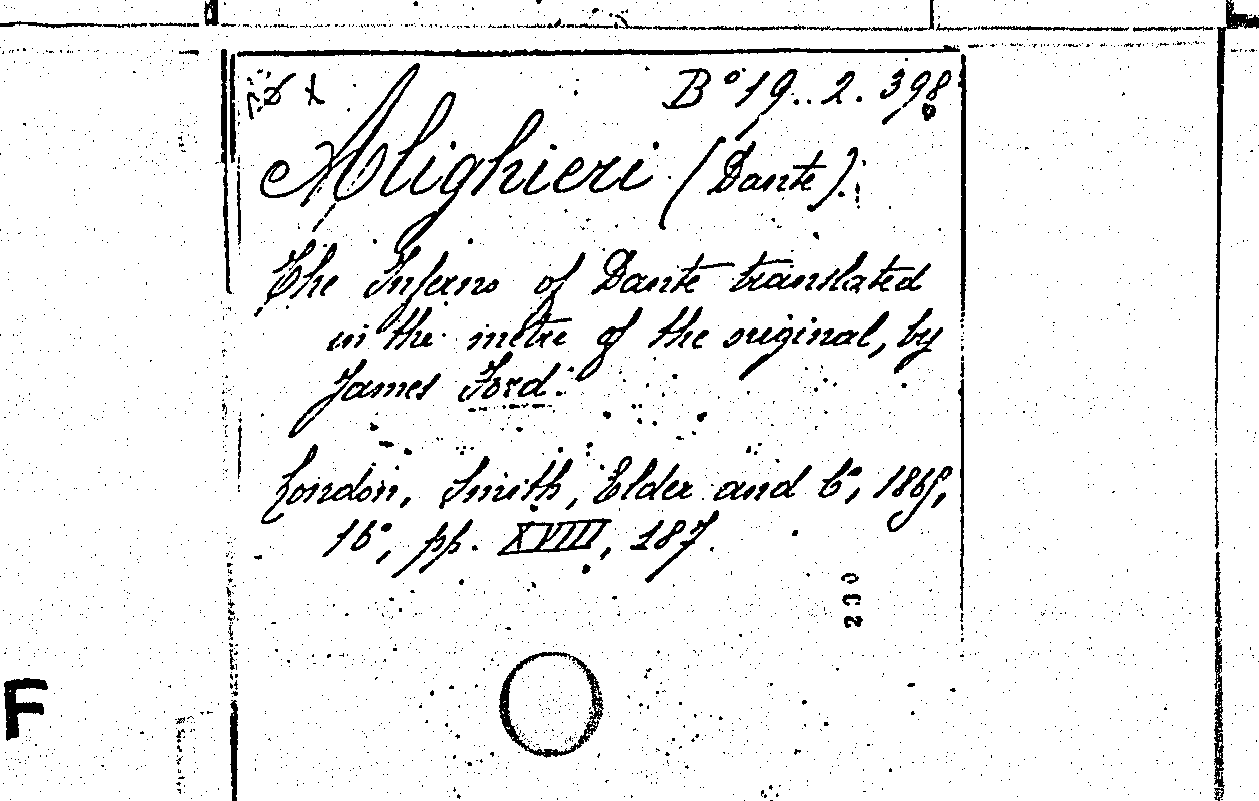 B° 19..2.398
Alighieri (Dante).
The Inferno of Dante translated
in the metre of the original, by
James Ford.
London, Smith, Elder and C°, 1865,
16°, pp. XVIII, 187.
230
F